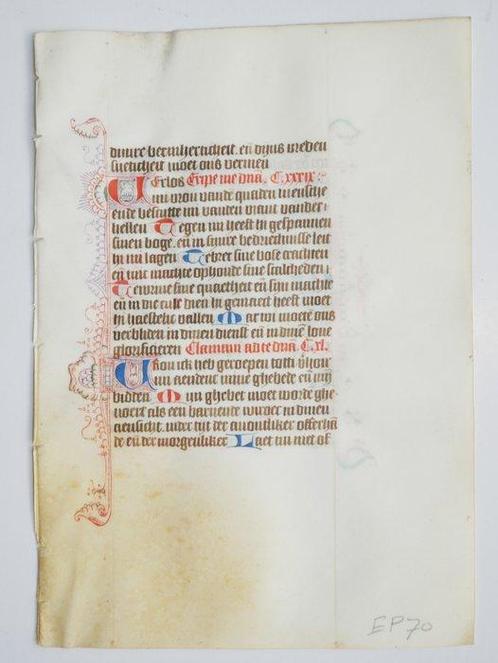 dinre vermhertichėit. en̄ dijns vreden
suetichėit moet ons vermen
Erlos Eripe me dn̄a. C.xxxix:
mi vrou vande quaden mensche
ende bescutte mi vanden viant vander
hellen Tegen mi heeft hi gespannen
sinen boge. en̄ in sinre bedriechnisse leit
hi mi lagen Tebrect sine bose crachten
en̄ mit machte ophoude sine scalcheden
Tewrine sine quaetheit en̄ sijn machte
en̄ in die cule dien hi gemaect heeft moet
hi haestelic vallen Mar wi moetē ons
verbliden in dinen dienst en̄ in dinē love
glorificeren Clamaui ad te dn̄a. C.xl.
Vrou ick heb geroepen tot di hoor
mi aendenct mine ghebede en̄ mijn
bidden Mijn ghebet moet worde ghe
voert als een barnende wiroec in dinen
aensicht. inder tijt der avontliker offerhā
de en̄ der morgenliker Laet mi niet of
EP70